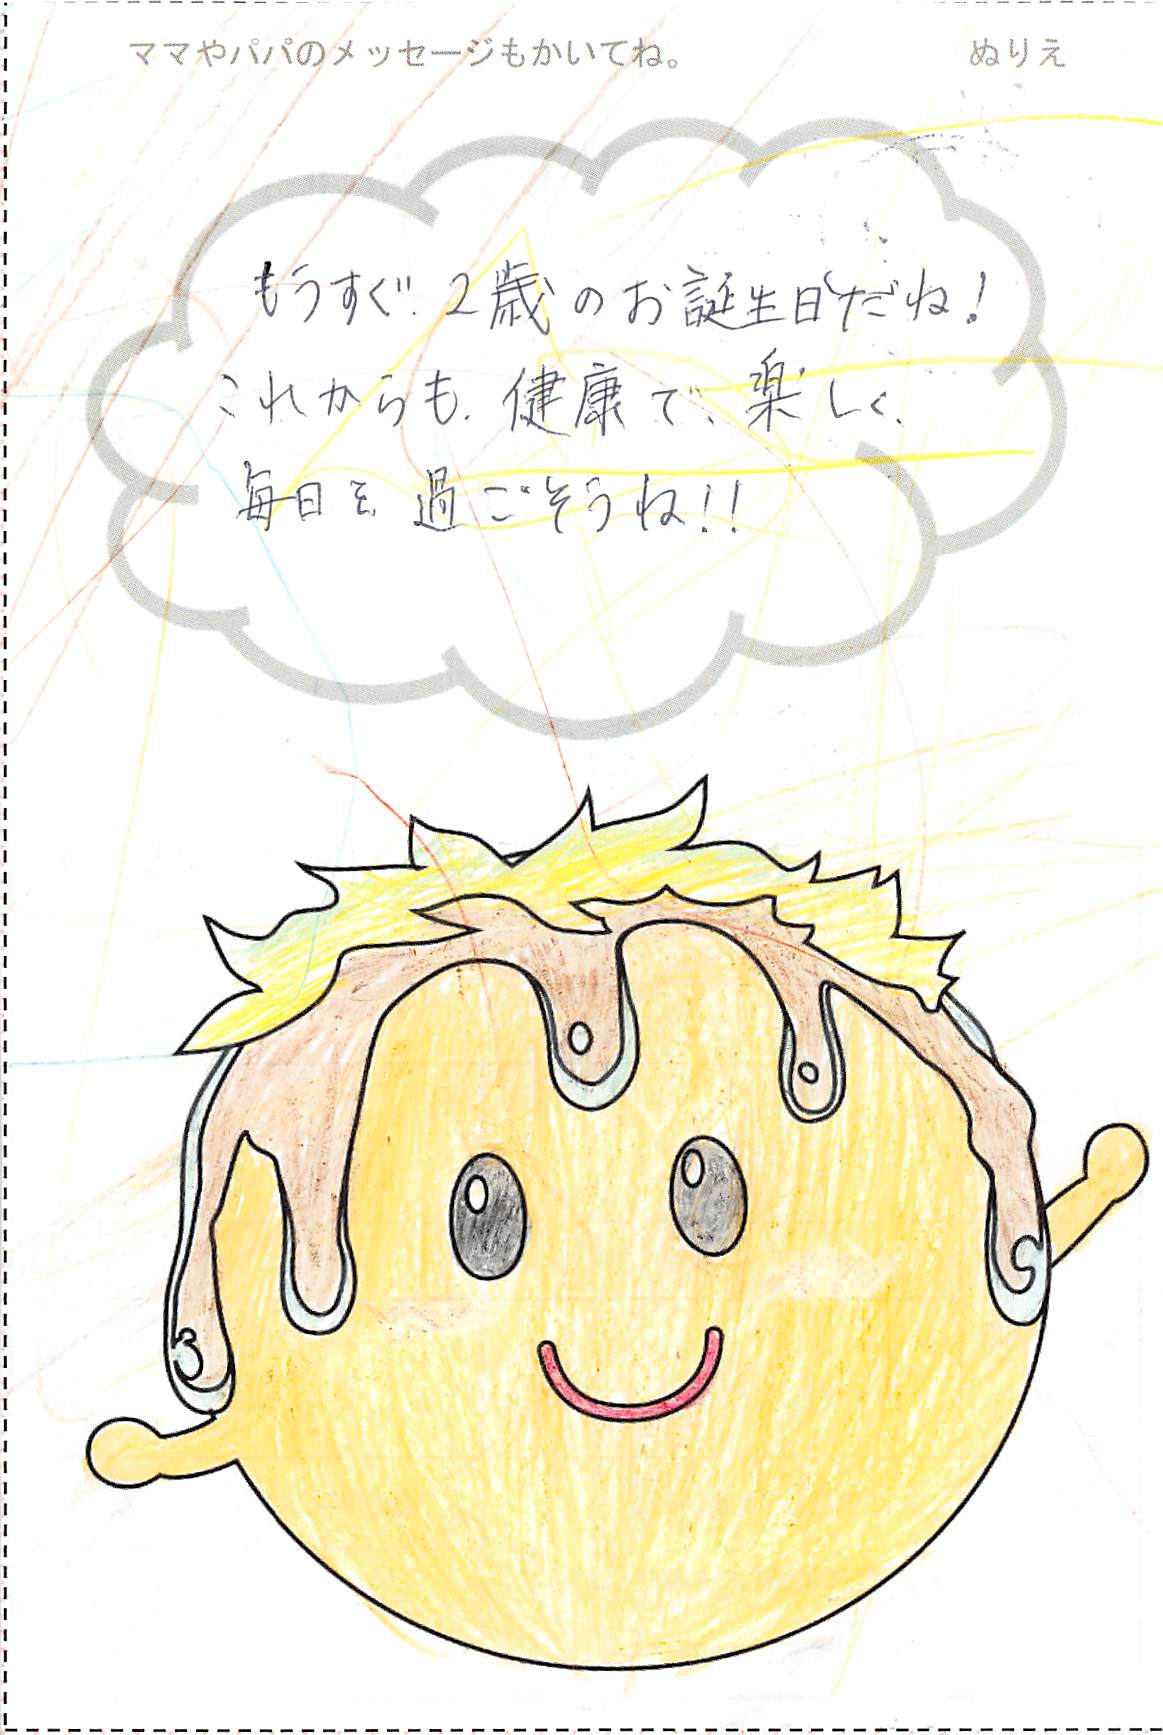 ママやパパのメッセージもかいてね。
ぬりえ
もうすぐ.2歳のお誕生日だね!
これからも.健康で、楽しく、
毎日を過ごそうね!!